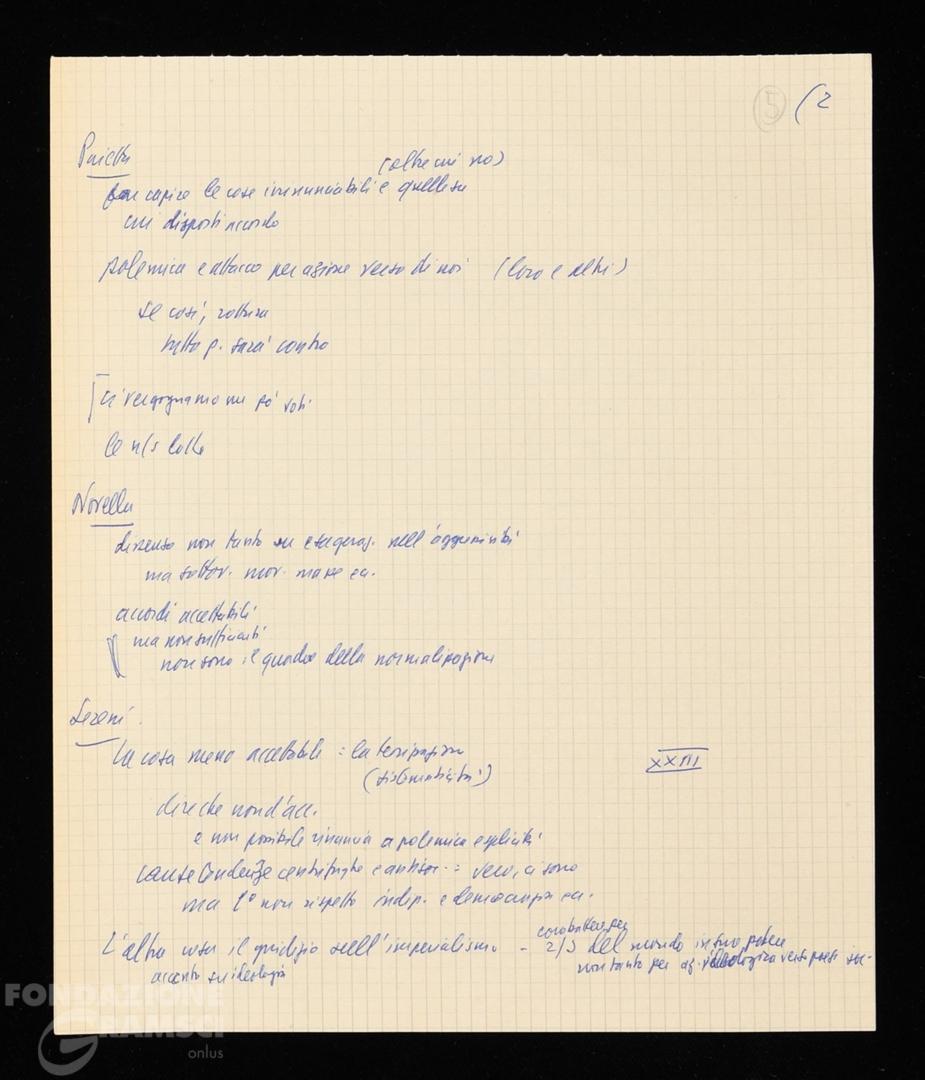 5 (2
Pajetta
(oltre cui no)
far capire le cose irrinunciabili e quelle su
cui disposti accordo
polemica e attacco per azione verso di noi (loro e altri)
se così, rottura
tutto p. sarà contro
ci vergognamo un pò voti
le n/s
Novella
dissenso non tanto su esageraz. nell'aggressività
ma sottov. mov. masse ecc.
accordi accettabili
ma non sufficienti
non sono il quadro della normalizzazione
Sereni.
La cosa meno accettabile : la teorizzazione
(sistematicità)
XXIII
dire che non d'acc.
e non possibile rinuncia a polemica esplicita
cause tendenze centrifughe e antisov. : vero, ci sono
ma 1° non rispetto indip. e democrazia ecc.
L'altra cosa il giudizio sull'imperialismo - combattere per
2/3 del mondo in suo potere
accento su ideologia
non tanto per az. ideologica verso paesi soc.
FONDAZIONE
GRAMSCI
onlus